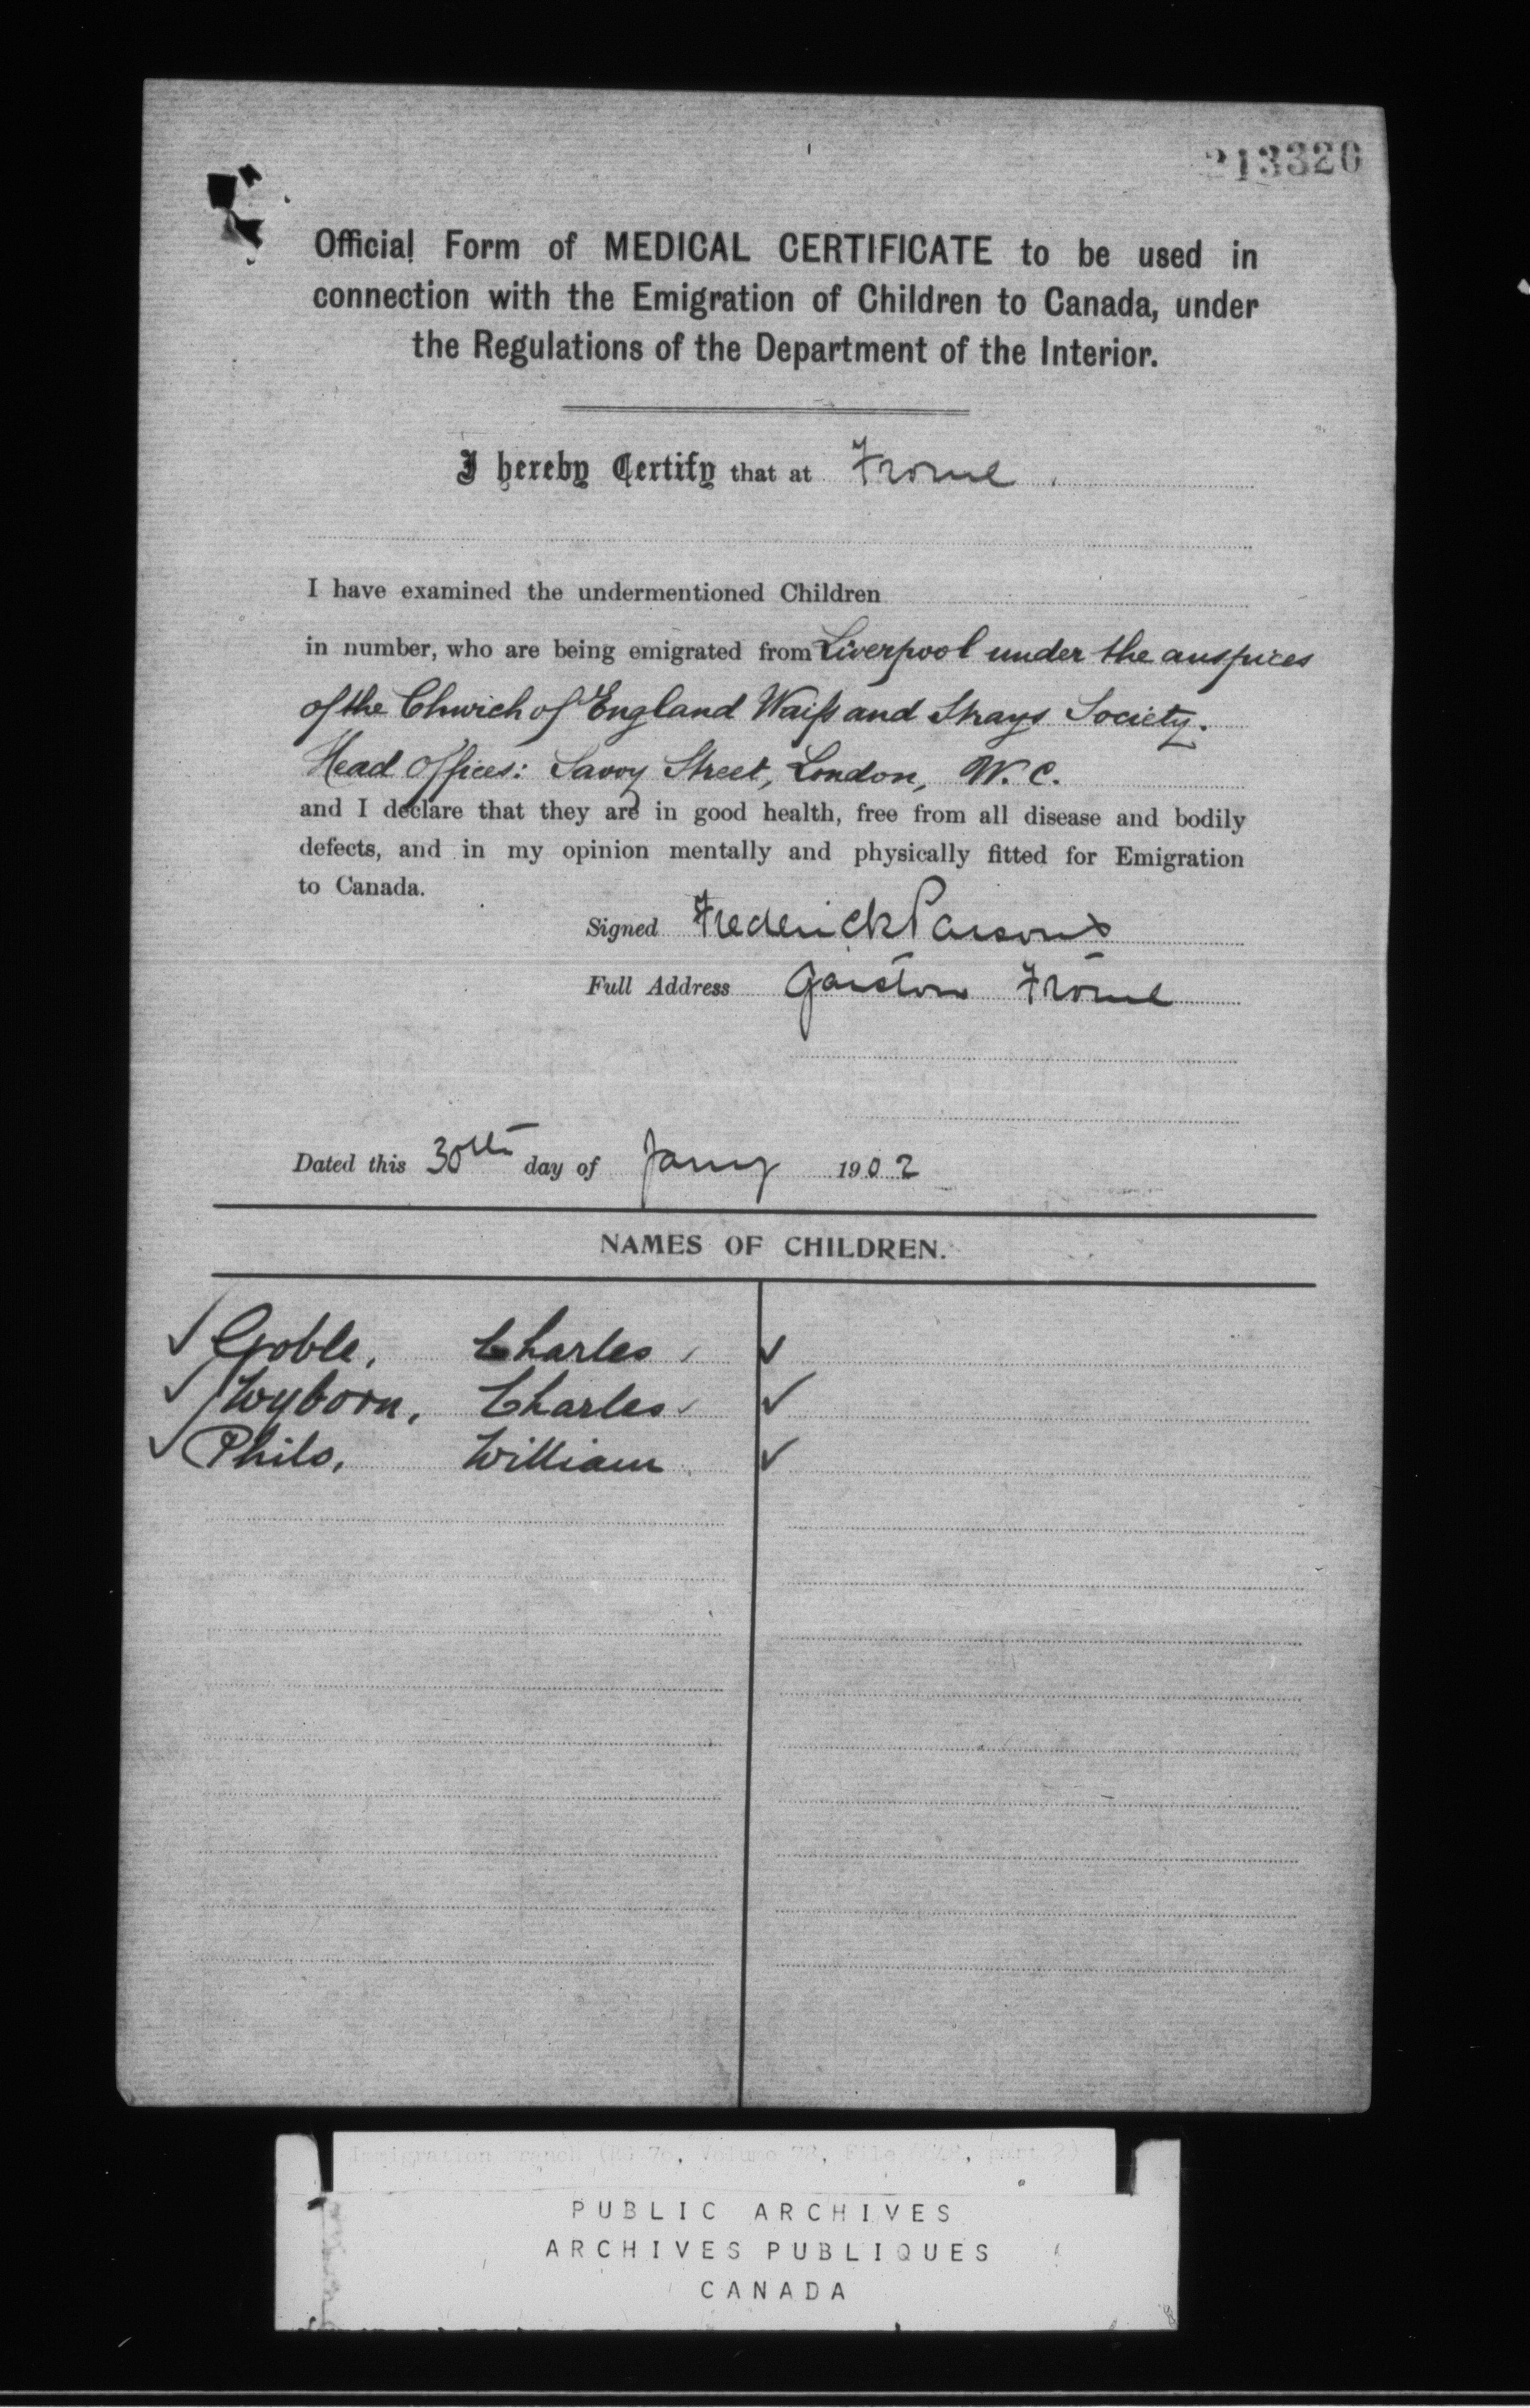 213320
Official Form of MEDICAL CERTIFICATE to be used in
connection with the Emigration of Children to Canada, under
the Regulations of the Department of the Interior.
I hereby Certify that at Frome.
I have examined the undermentioned Children
in number, who are being emigrated from Liverpool under the auspices
of the Church of England Waifs and Strays Society.
Head Offices: Savoy Street, London, W.C.
and I declare that they are in good health, free from all disease and bodily
defects, and in my opinion mentally and physically fitted for Emigration
to Canada.
Signed Frederick Parsons
Full Address Garston Frome
Dated this 30th day of Jany 1902
NAMES OF CHILDREN.
Goble, Charles
Wyborn, Charles
Philo, William
Immigration Branch (RG 76, Volume 78, File, part 2)
PUBLIC ARCHIVES
ARCHIVES PUBLIQUES
CANADA